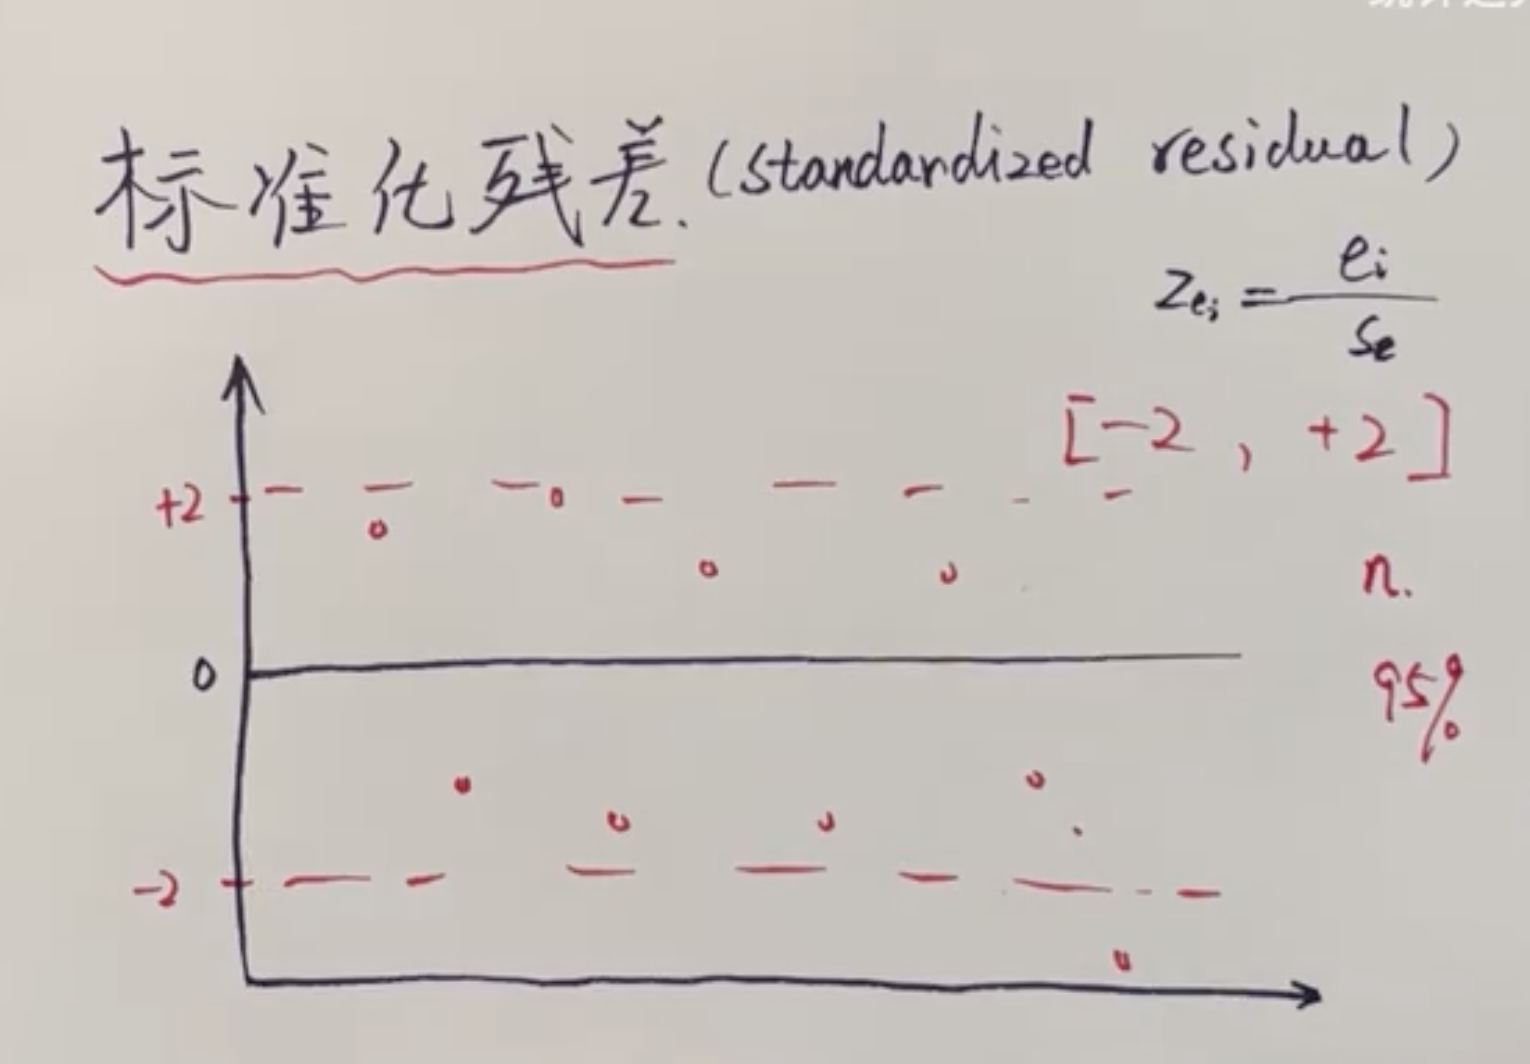 标准化残差.(standardized residual)
Zei = ei / Se
[-2, +2]
+2
n.
0
95%
-2